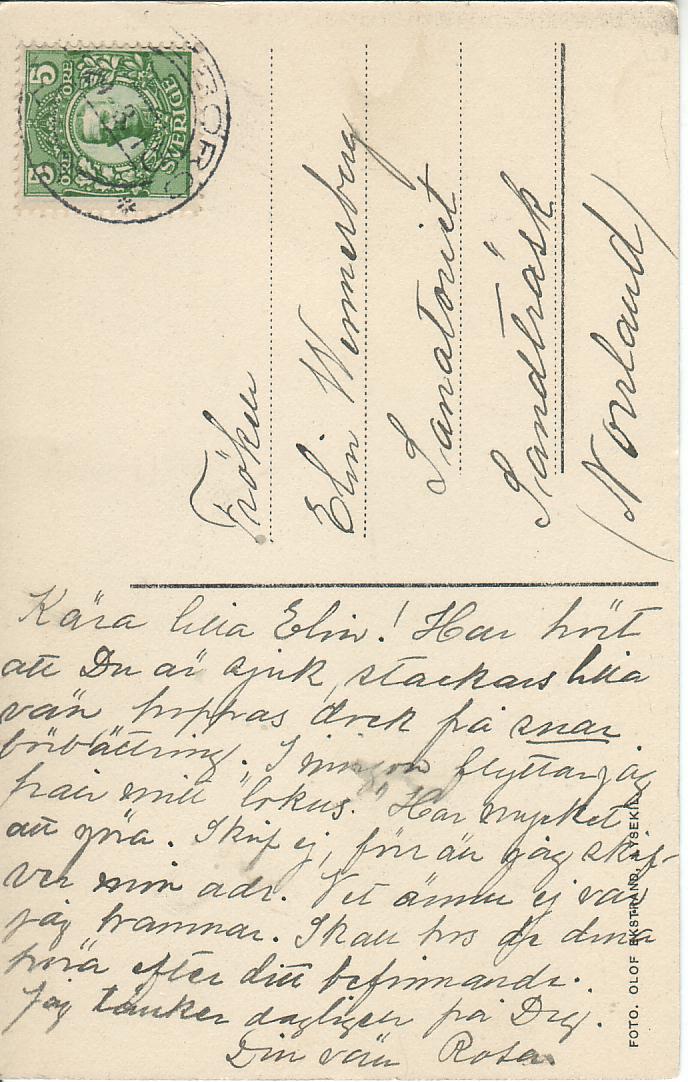 5 ÖRE
SVERIGE
5 ÖRE
BORG
Fröken
Elin Wennerberg
Sanatoriet
Sandträsk
(Norrland)
Kära lilla Elin! Har hört
att Du är sjuk, stackars lilla
vän hoppas dock på snar
förbättring. I morgon flyttar jag
från mitt "lokus." Har mycket
att göra. Skrif ej, förr än jag skrif-
ver min adr. Vet ännu ej var
jag hamnar. Skall hos de dina
höra efter ditt befinnande.
Jag tänker dagligen på Dig.
Din vän Rosa.
FOTO. OLOF EKSTRAND, LYSEKIL